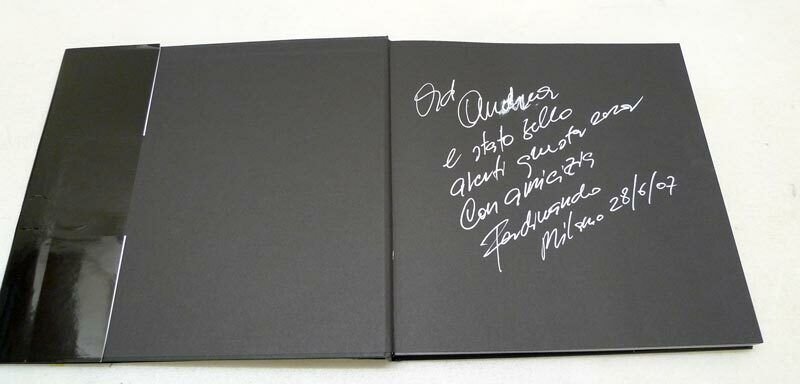 Ad Andrea
è stato bello
averti questa sera
Con amicizia
Ferdinando
Milano 28/6/07